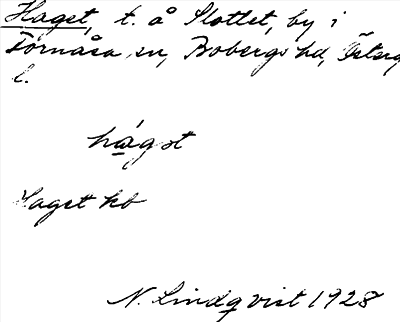 Haget, t. å Slottet, by i
Fornåsa sn, Bobergs hd, Österg
l.
hágot
Haget kb
N. Lindqvist 1928